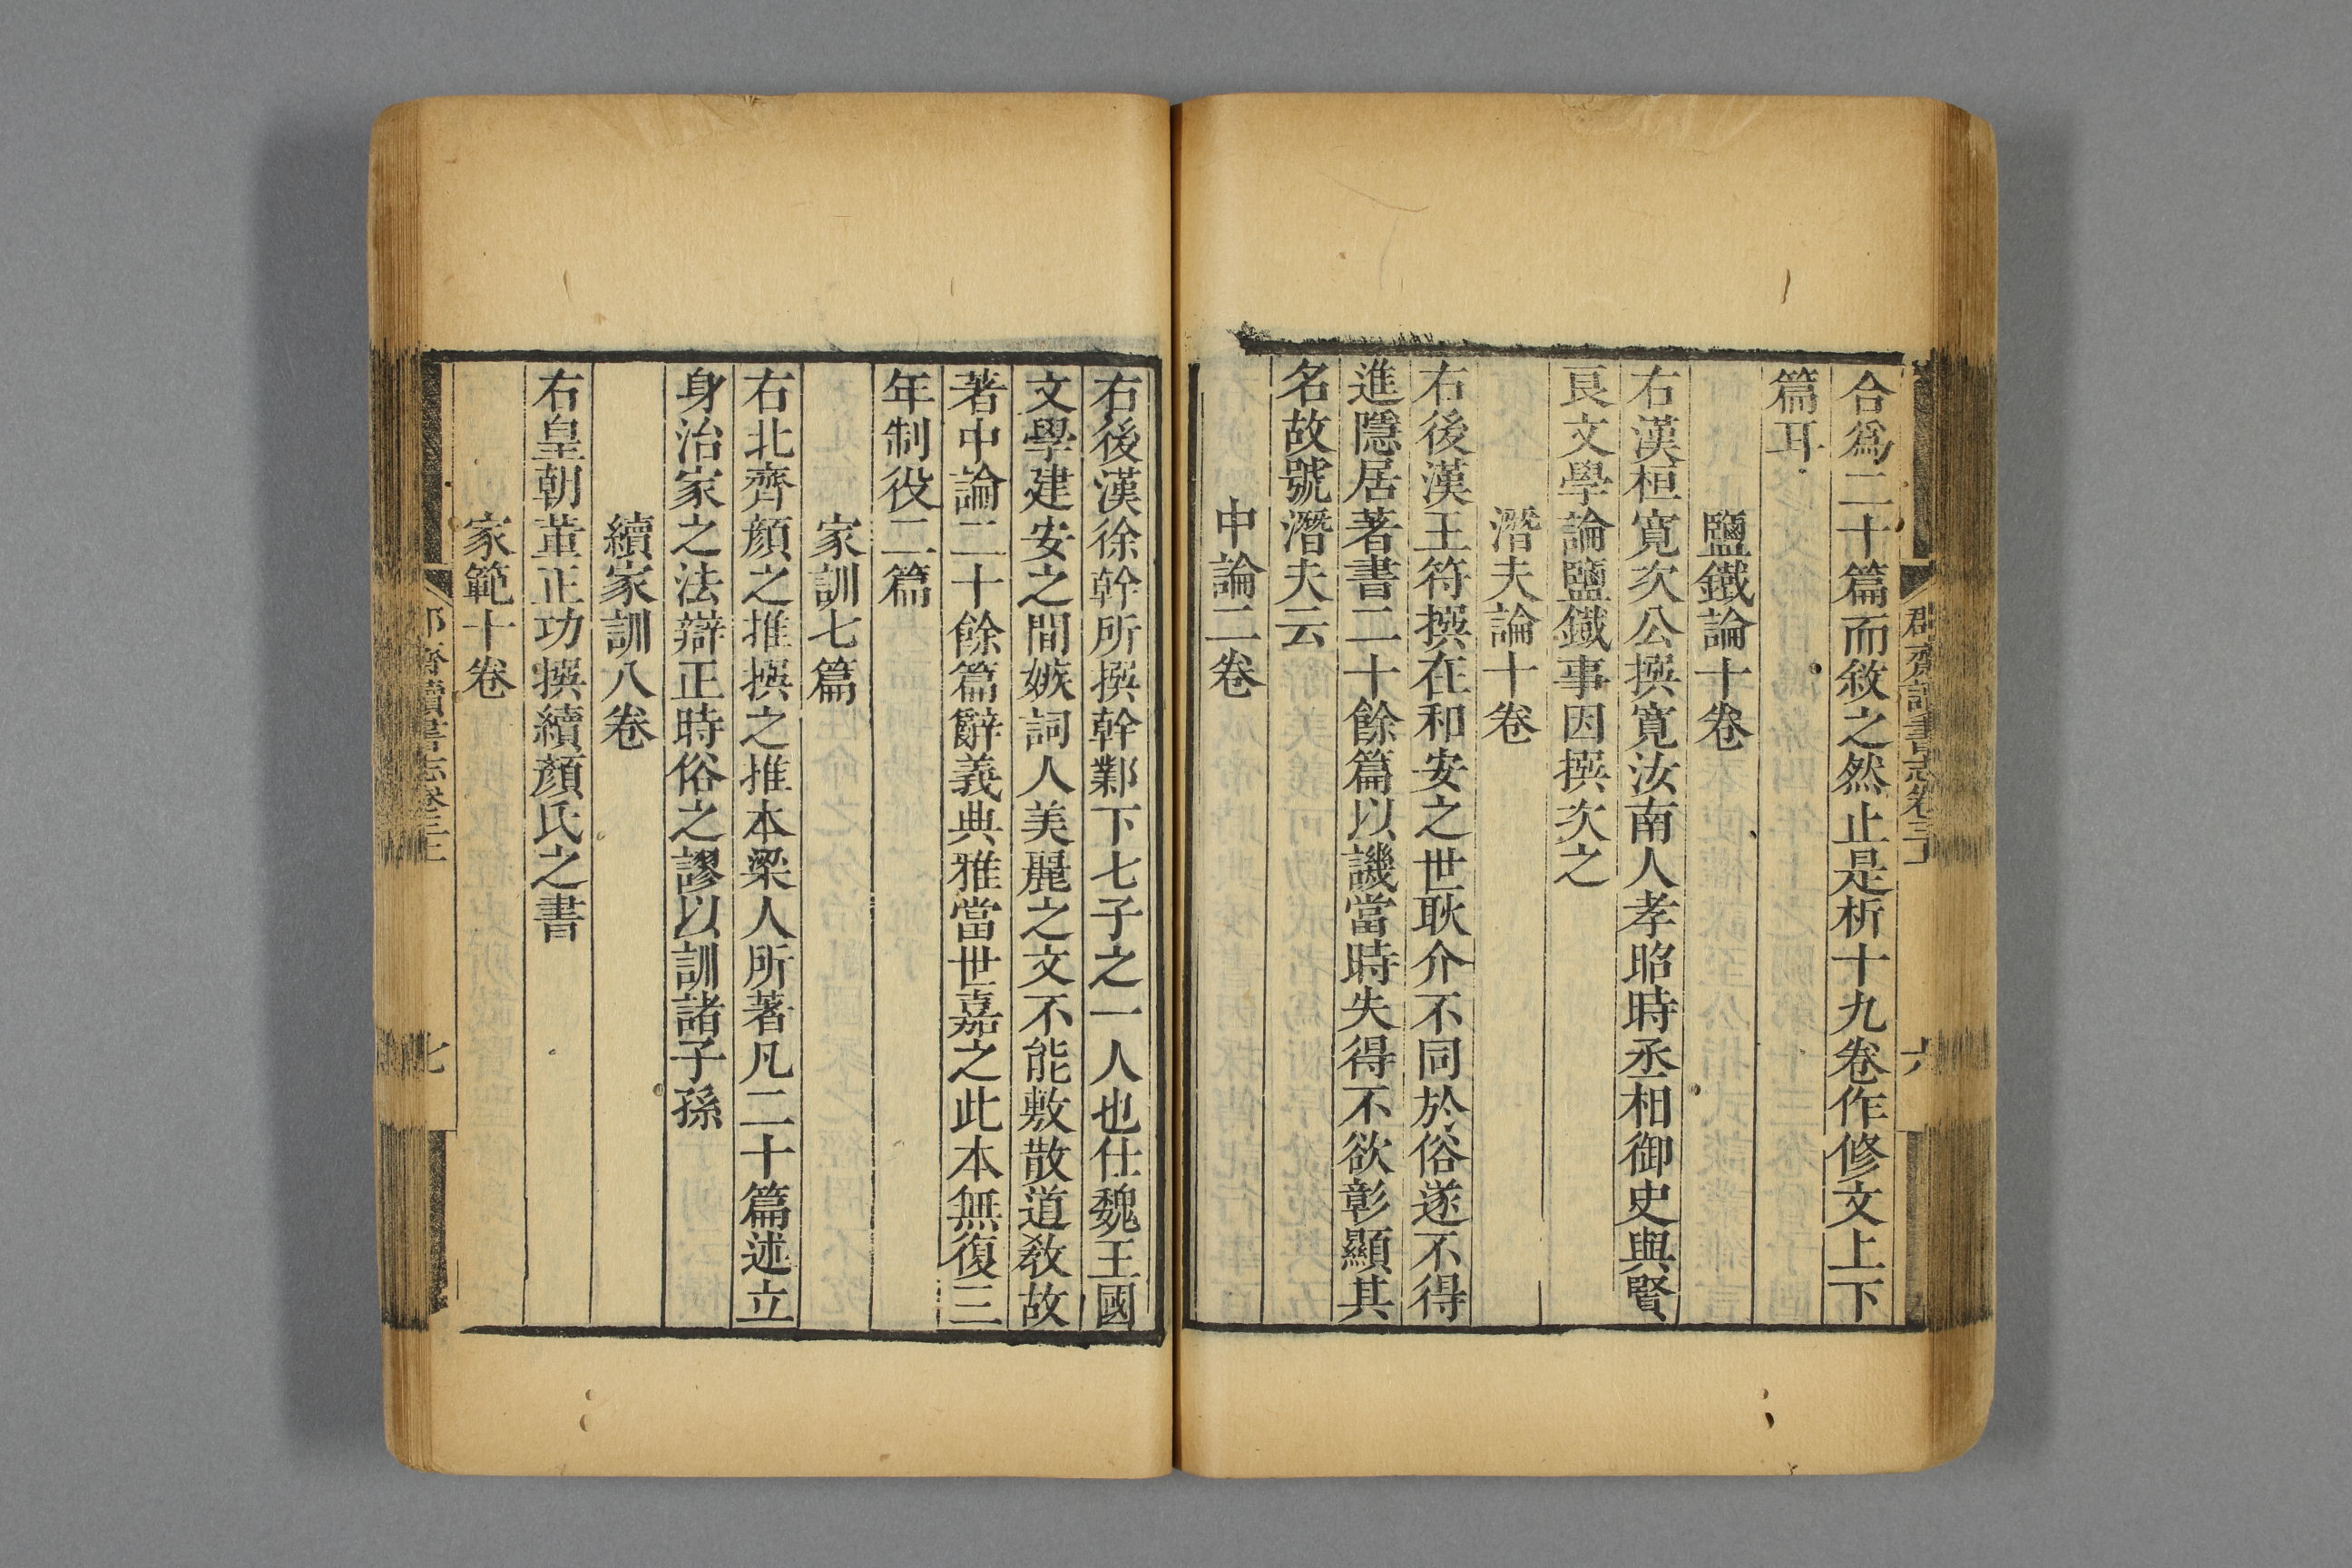 合爲二十篇而敘之然止是析十九卷作修文上下
篇耳
鹽鐵論十卷
右漢桓寬次公撰寬汝南人孝昭時丞相御史與賢
良文學論鹽鐵事因撰次之
潛夫論十卷
右後漢王符撰在和安之世耿介不同於俗遂不得
進隱居著書二十餘篇以譏當時失得不欲彰顯其
名故號潛夫云
中論二卷
右後漢徐幹所撰幹鄴下七子之一人也仕魏王國
文學建安之間嫉詞人美麗之文不能敷散道敎故
著中論二十餘篇辭義典雅當世嘉之此本無復三
年制役二篇
家訓七篇
右北齊顏之推撰之推本梁人所著凡二十篇述立
身治家之法辯正時俗之謬以訓諸子孫
續家訓八卷
右皇朝董正功撰續顏氏之書
家範十卷
郡齋讀書志卷三上
七